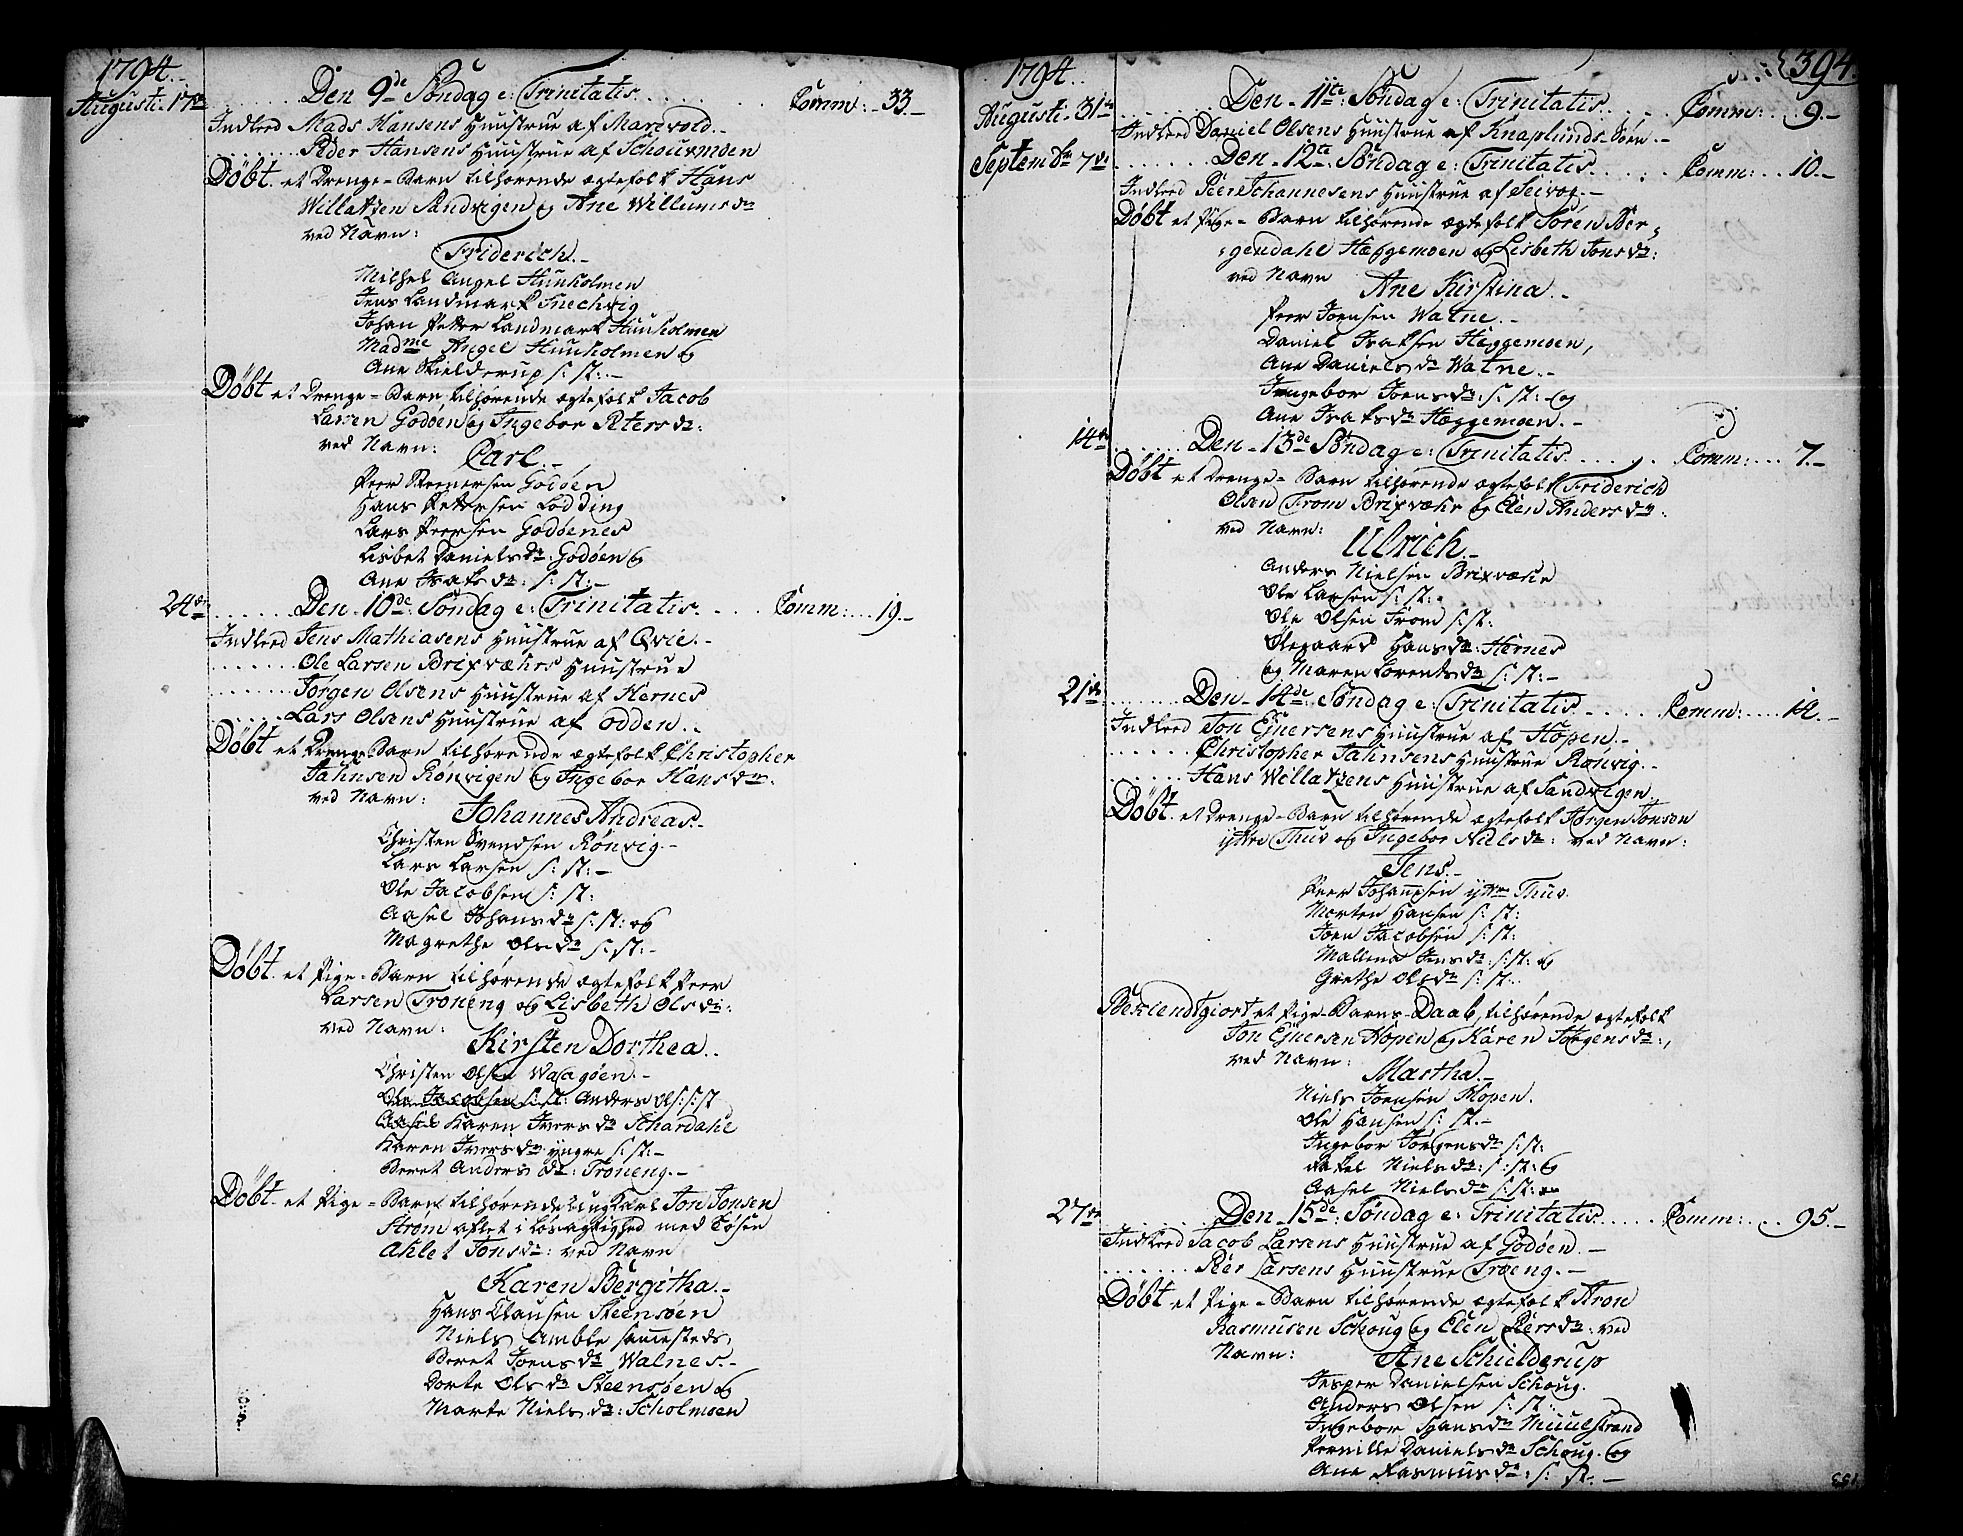 1794.
Augusti 17de ...... Den 9de Søndag e: Trinitatis ........ Comm: 33.-
Indleed Mads Hansens Huustrue af Marevold.-
........ Peder Hansens Huustrue af Schousmoen
Døbt et Drenge-Barn tilhørende ægtefolk Hans
Willatzen Sandvigen og Ane Willumsdr
ved Navn:
Friderich.-
Michel Angel Hunholmen
Jens Landmark Snechvig
Johan Petter Landmark Hunholmen
Madme Angel Hunholmen og
Ane Skielderup s: st:.-
Døbt et Drenge-Barn tilhørende ægtefolk Jacob
Larsen Godøen og Ingebor Petersdr:
ved Navn:
Carl.-
Peer Steenersen Godøen
Hans Pettersen Lødding
Lars Peersen Godøenes
Lisbet Danielsdr: Godøen og
Ane Isaksdr: s: st:-
24de ...... Den 10de Søndag e: Trinitatis .... Comm: .... 19.-
Indleed Jens Mathiasens Huustrue af Qvie.-
....... Ole Larsen Brixværs Huustrue
....... Jørgen Olsens Huustrue af Hernes
...... Lars Olsens Huustrue af Odden.-
Døbt et Drenge-Barn tilhørende ægtefolk Christopher
Jahnsen Rønvigen og Ingebor Hansdr:
ved Navn:
Johannes Andreas.-
Christen Svendsen Rønvig.-
Lars Larsen s: st:-
Ole Jacobsen s: st:
Aasel Johansdr s: st: og
Magrethe Olsdr s: st:-
Døbt et Pige-Barn tilhørende ægtefolk Peer
Larsen Troneng og Lisbeth Olsdr:
ved Navn:
Kirsten Dorthea.-
Christen Olsen Waagøen.-
Ole Jacobsen s: st: Anders Ols: s: st
Aasel Karen Iversdr Schardahl
Karen Iversdr yngre s: st:-
Beret Andersdr: Troneng.-
Døbt et Pige-Barn tilhørende Ungkarl Jon Jonsen
Strøm aflet i Løsagtighed med Tøsen
Ahlet Jonsdr: ved Navn
Karen Bergitha.-
Hans Clausen Steensøen
Niels Amble sammesteds
Beret Joensdr Walnes.-
Dorte Olsdr Steensøen og
Marte Nielsdr: Scholmoen
1794.
394.
Augusti 31te ....... Den 11te Søndag e: Trinitatis .... Comm: ... 9.-
Indleed Daniel Olsens Huustrue af Knaplunds-Øen.-
Septembr 7de ....... Den 12te Søndag e: Trinitatis ...... Comm: ... 10.-
Indleed Peer Johannesens Huustrue af Seivog.-
Døbt et Pige-Barn tilhørende ægtefolk Søren Ber-
gendahl Hæggemoen og Lisbeth Jonsdr:
ved Navn
Ane Kirstina.-
Peer Joensen Watne.-
Daniel Isaksen Hæggemoen,
Ane Danielsdr Watne.-
Ingebor Joensdr: s: st: og
Ane Isaksdr Hæggemoen.-
14de ...... Den 13de Søndag e: Trinitatis ...... Comm: .... 7.-
Døbt et Drenge-Barn tilhørende ægtefolk Friderich
Olsen From Brixvær og Elen Andersdr:
ved Navn:
Ulrich.-
Anders Nielsen Brixvær
Ole Larsen s: st:
Ole Olsen From s: st:
Olegaard Hansdr: Hernes
og Maren Lorentsdr s: st:-
21de ........ Den 14de Søndag e: Trinitatis ..... Comm: .... 12.-
Indleed Jon Ejnersens Huustrue af Hopen.-
........ Christopher Jahnsens Huustrue Rønvig.-
....... Hans Willatzens Huustrue af Sandvigen.
Døbt et Drenge-Barn tilhørende ægtefolk Jørgen Jonsen
yttre Thuv og Ingebor Nielsdr: ved Navn:
Jens.-
Peer Johannesen yttre Thuv
Morten Hansen s: st:
Joen Jacobsen s: st:
Malena Jensdr: s: st: og
Grethe Olsdr s: st:.
Bekiendtgiort et Pige-Barns-Daab, tilhørende ægtefolk
Jon Ejnersen Hopen og Karen Jørgensdr:,
ved Navn:
Martha.-
Niels Joensen Hopen.
Ole Hansen s: st.-
Ingebor Jørgensdr s: st:
Nielsdr: s: st: og
Aasel Nielsdr s: st:
27de ....... Den 15de Søndag e: Trinitatis ..... Comm: .... 95.-
Indleed Jacob Larsens Huustrue af Godøen.-
....... Peer Larsens Huustrue Troeng.-
Døbt et Pige-Barn tilhørende ægtefolk Aron
Rasmusen Schoug og Elen Peersdr: ved
Navn:
Ane Schielderup
Jesper Danielsen Schoug.
Anders Olsen s: st:
Ingebor Hansdr Muulstrand
Pernille Danielsdr Schoug. og
Ane Rasmusdr: s: st:.-